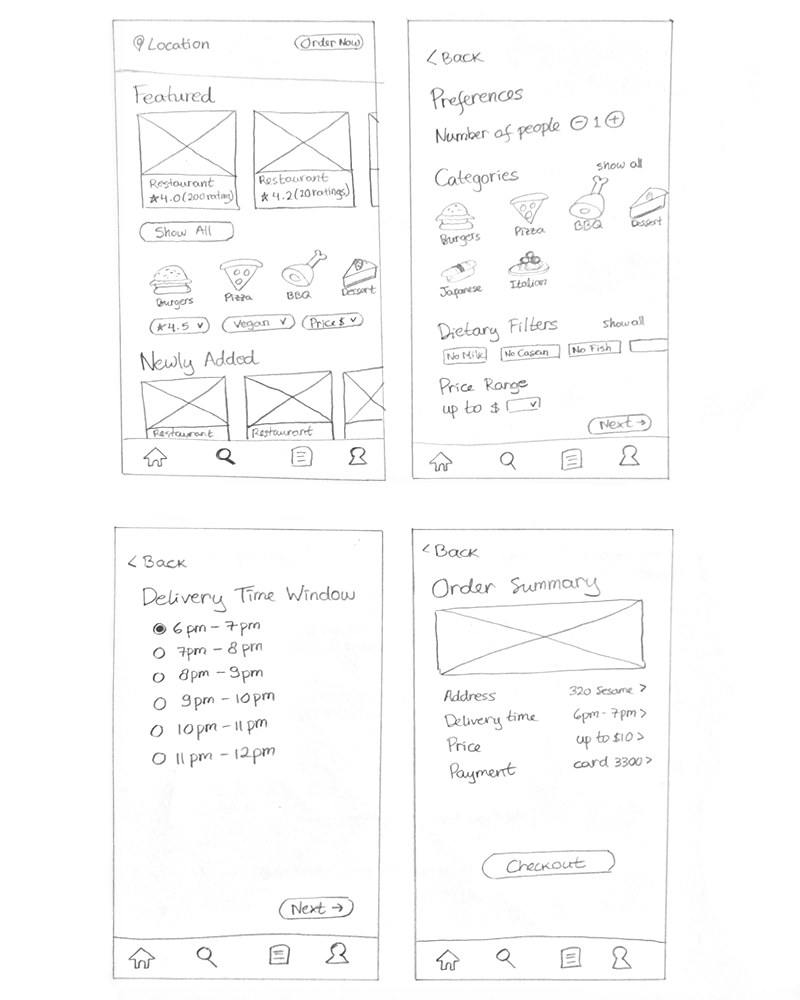 Location
Order Now
Featured
Restaurant
★4.0(200 rating)
Restaurant
★4.2(20 ratings)
Show All
Burgers
Pizza
BBQ
Dessert
★4.5 ∨
Vegan ∨
Price $ ∨
Newly Added
Restaurant
Restaurant
< Back
Preferences
Number of people − 1 +
Categories
show all
Burgers
Pizza
BBQ
Dessert
Japanese
Italian
Dietary Filters
Show all
No Milk
No Casean
No Fish
Price Range
up to $ ∨
Next →
< Back
Delivery Time Window
6pm – 7pm
7pm – 8pm
8pm – 9pm
9pm – 10pm
10pm – 11pm
11pm – 12pm
Next →
< Back
Order Summary
Address 320 Sesame >
Delivery time 6pm - 7pm >
Price up to $10 >
Payment card 3300 >
Checkout